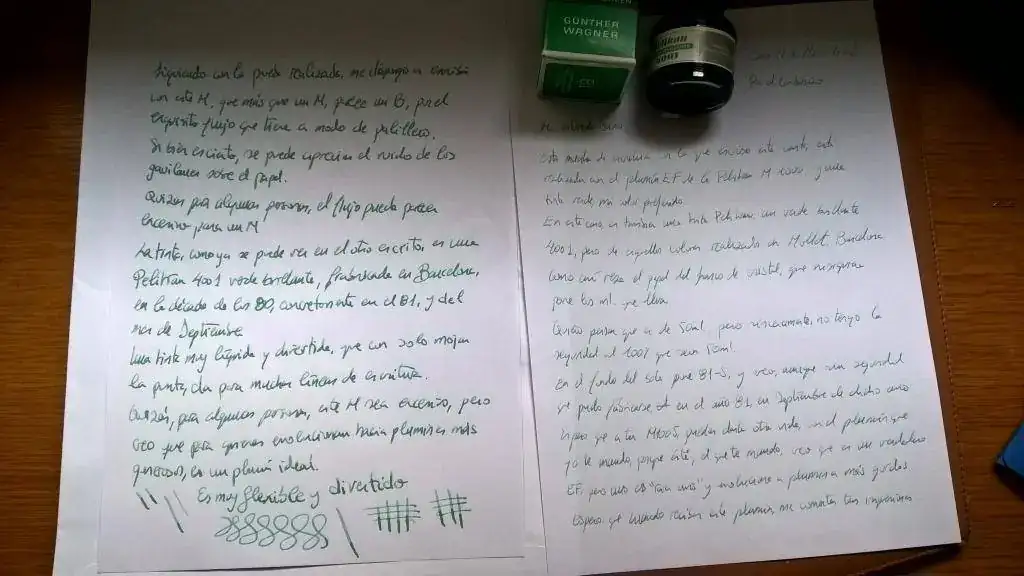 Siguiendo con la prueba realizada, me dispongo a escribir
con este M, que más que un M, parece un B, por el
exquisito flujo que tiene a modo de palillero.
Si bien es cierto, se puede apreciar el ruido de los
gavilanes sobre el papel.
Quizás para algunas personas, el flujo pueda parecer
excesivo, para un M
La tinta, como ya se puede ver en el otro escrito, es una
Pelikan 4001 verde brillante, fabricada en Barcelona,
en la década de los 80, concretamente en el 81, y del
mes de Septiembre
Una tinta muy líquida y divertida, que con solo mojar
la punta, da para muchas líneas de escritura.
Quizás, para algunas personas, este M sea excesivo, pero
veo que para quienes evolucionan hacia plumines más
generosos, es un plumín ideal.
Es muy flexible y divertido
GÜNTHER
WAGNER
Pelikan
4001
Esta muestra de escritura con la que escribo esta carta, está
realizada con el plumín EF de la Pelikan M 1000, y una
tinta verde, mi color preferido.
En este caso, es también una tinta Pelikan, un verde brillante
4001, pero de aquellos colores realizados en Mollet, Barcelona
como así reza el papel del frasco de cristal, que ni siquiera
pone los ml. que lleva.
Quiero pensar que es de 50ml, pero sinceramente, no tengo la
seguridad al 100% que sean 50ml.
En el fondo del sale pone 81-S, y veo, aunque sin seguridad
que pudo fabricarse en el año 81, en Septiembre de dicho año
Espero que a tu M1005, puedas darle otra vida, con el plumín que
ya te mando, porque éste, el que te mando, veo que es un verdadero
EF, pero uno es "rara avis" y evoluciona a plumines más gordos
Espero que cuando recibas este plumín, me comentes tus impresiones